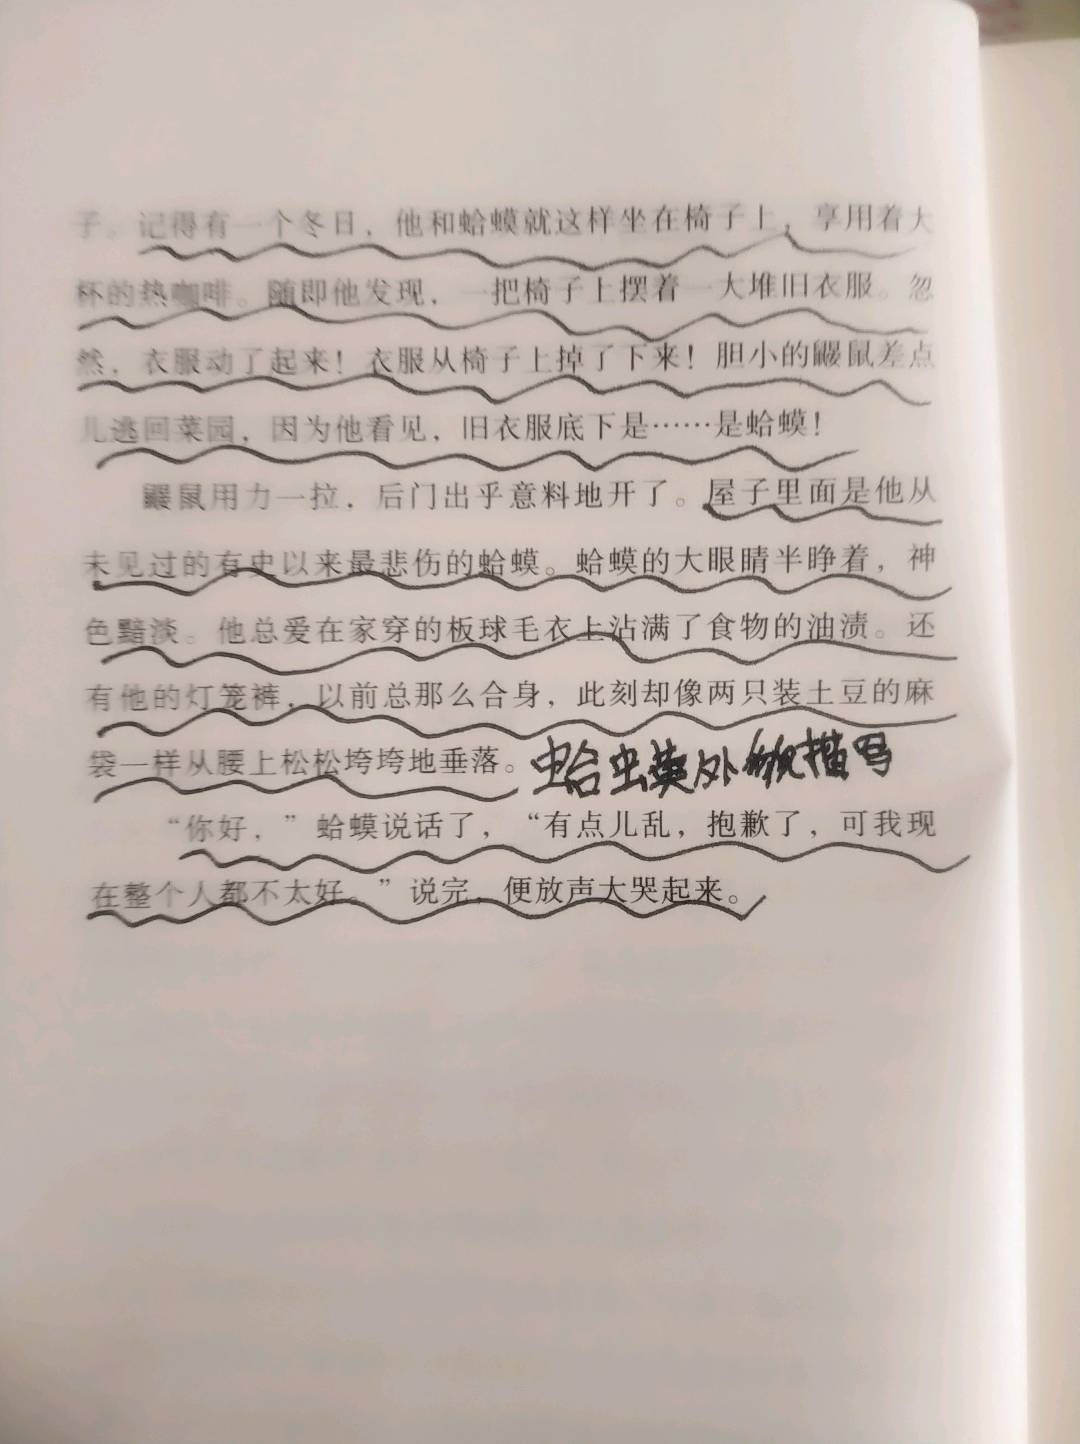 子。记得有一个冬日，他和蛤蟆就这样坐在椅子上，享用着大
杯的热咖啡。随即他发现，一把椅子上摆着一大堆旧衣服。忽
然，衣服动了起来！衣服从椅子上掉了下来！胆小的鼹鼠差点
儿逃回菜园，因为他看见，旧衣服底下是……是蛤蟆！
鼹鼠用力一拉，后门出乎意料地开了。屋子里面是他从
未见过的有史以来最悲伤的蛤蟆。蛤蟆的大眼睛半睁着，神
色黯淡。他总爱在家穿的板球毛衣上沾满了食物的油渍。还
有他的灯笼裤，以前总那么合身，此刻却像两只装土豆的麻
袋一样从腰上松松垮垮地垂落。蛤蟆外貌描写
“你好，”蛤蟆说话了，“有点儿乱，抱歉了，可我现
在整个人都不太好。”说完，便放声大哭起来。